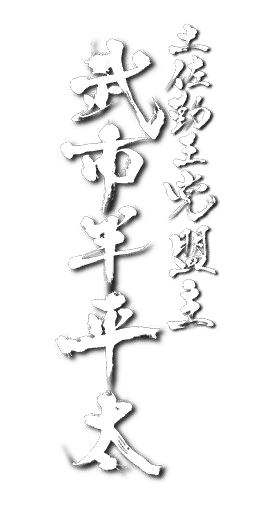 土佐勤王党盟主
武市半平太